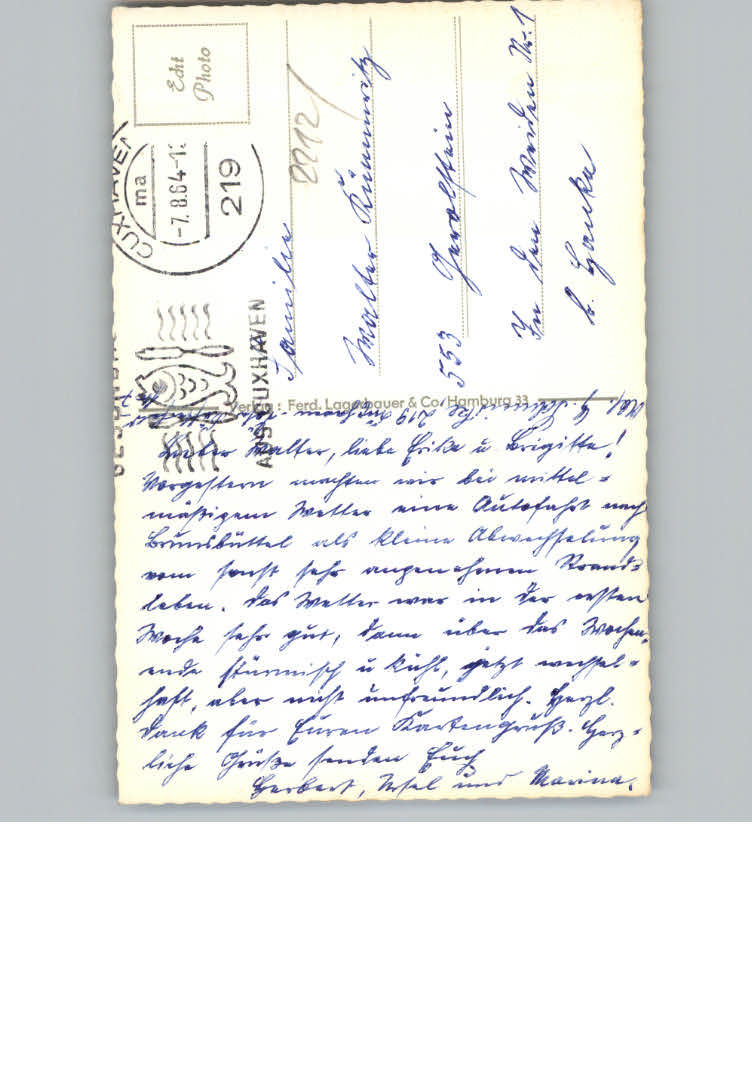 Echt
Photo
CUXHAVEN
ma
-7.8.64-1
219
AUS CUXHAVEN
2212/
Familie
Walter Kümmritz
553 Gerolstein
In den Weiden Nr. 1
b. Hanke
Verlag: Ferd. Lagerbauer & Co. Hamburg 33
219
Lieber Walter, liebe Erika u. Brigitte!
Vorgestern machten wir bei mittel-
mäßigem Wetter eine Autofahrt nach
Brunsbüttel als kleine Abwechselung
vom sonst sehr angenehmen Strand-
leben. Das Wetter war in der ersten
Woche sehr gut, dann über das Wochen-
ende stürmisch u. kühl, jetzt wechsel-
haft, aber nicht unfreundlich. Herzl.
Dank für Euren Kartengruß. Herz-
liche Grüße senden Euch
Herbert, Ursel und Marina.